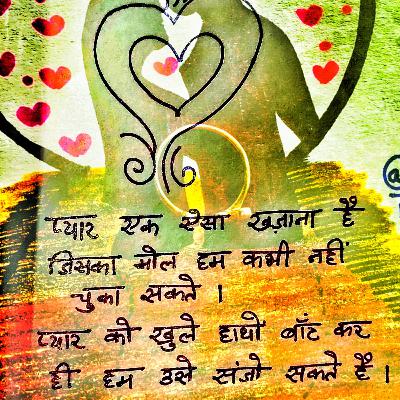 प्यार एक ऐसा खज़ाना है
जिसका मोल हम कभी नहीं
चुका सकते ।
प्यार को खुले हाथो बाँट कर
ही हम उसे संजो सकते है ।